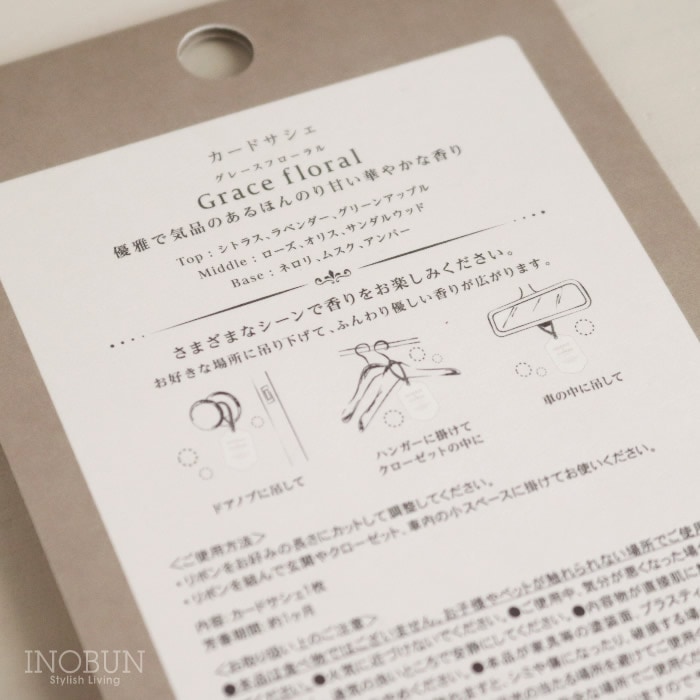 カードサシェ
グレースフローラル
Grace floral
優雅で気品のあるほんのり甘い華やかな香り
Top : シトラス、ラベンダー、グリーンアップル
Middle : ローズ、オリス、サンダルウッド
Base : ネロリ、ムスク、アンバー
さまざまなシーンで香りをお楽しみください。
お好きな場所に吊り下げて、ふんわり優しい香りが広がります。
ドアノブに吊して
ハンガーに掛けて
クローゼットの中に
車の中に吊して
<ご使用方法>
・リボンをお好みの長さにカットして調整してください。
・リボンを結んで玄関やクローゼット、車内の小スペースに掛けてお使いください。
内容:カードサシェ1枚
芳香期間:約1ヶ月
<お取り扱い上のご注意>
●本品は食べ物ではございません。お子様やペットが触れられない場所でご使用
●火気に近づけないでください。●ご使用中、気分が悪くなった場
INOBUN
Stylish Living